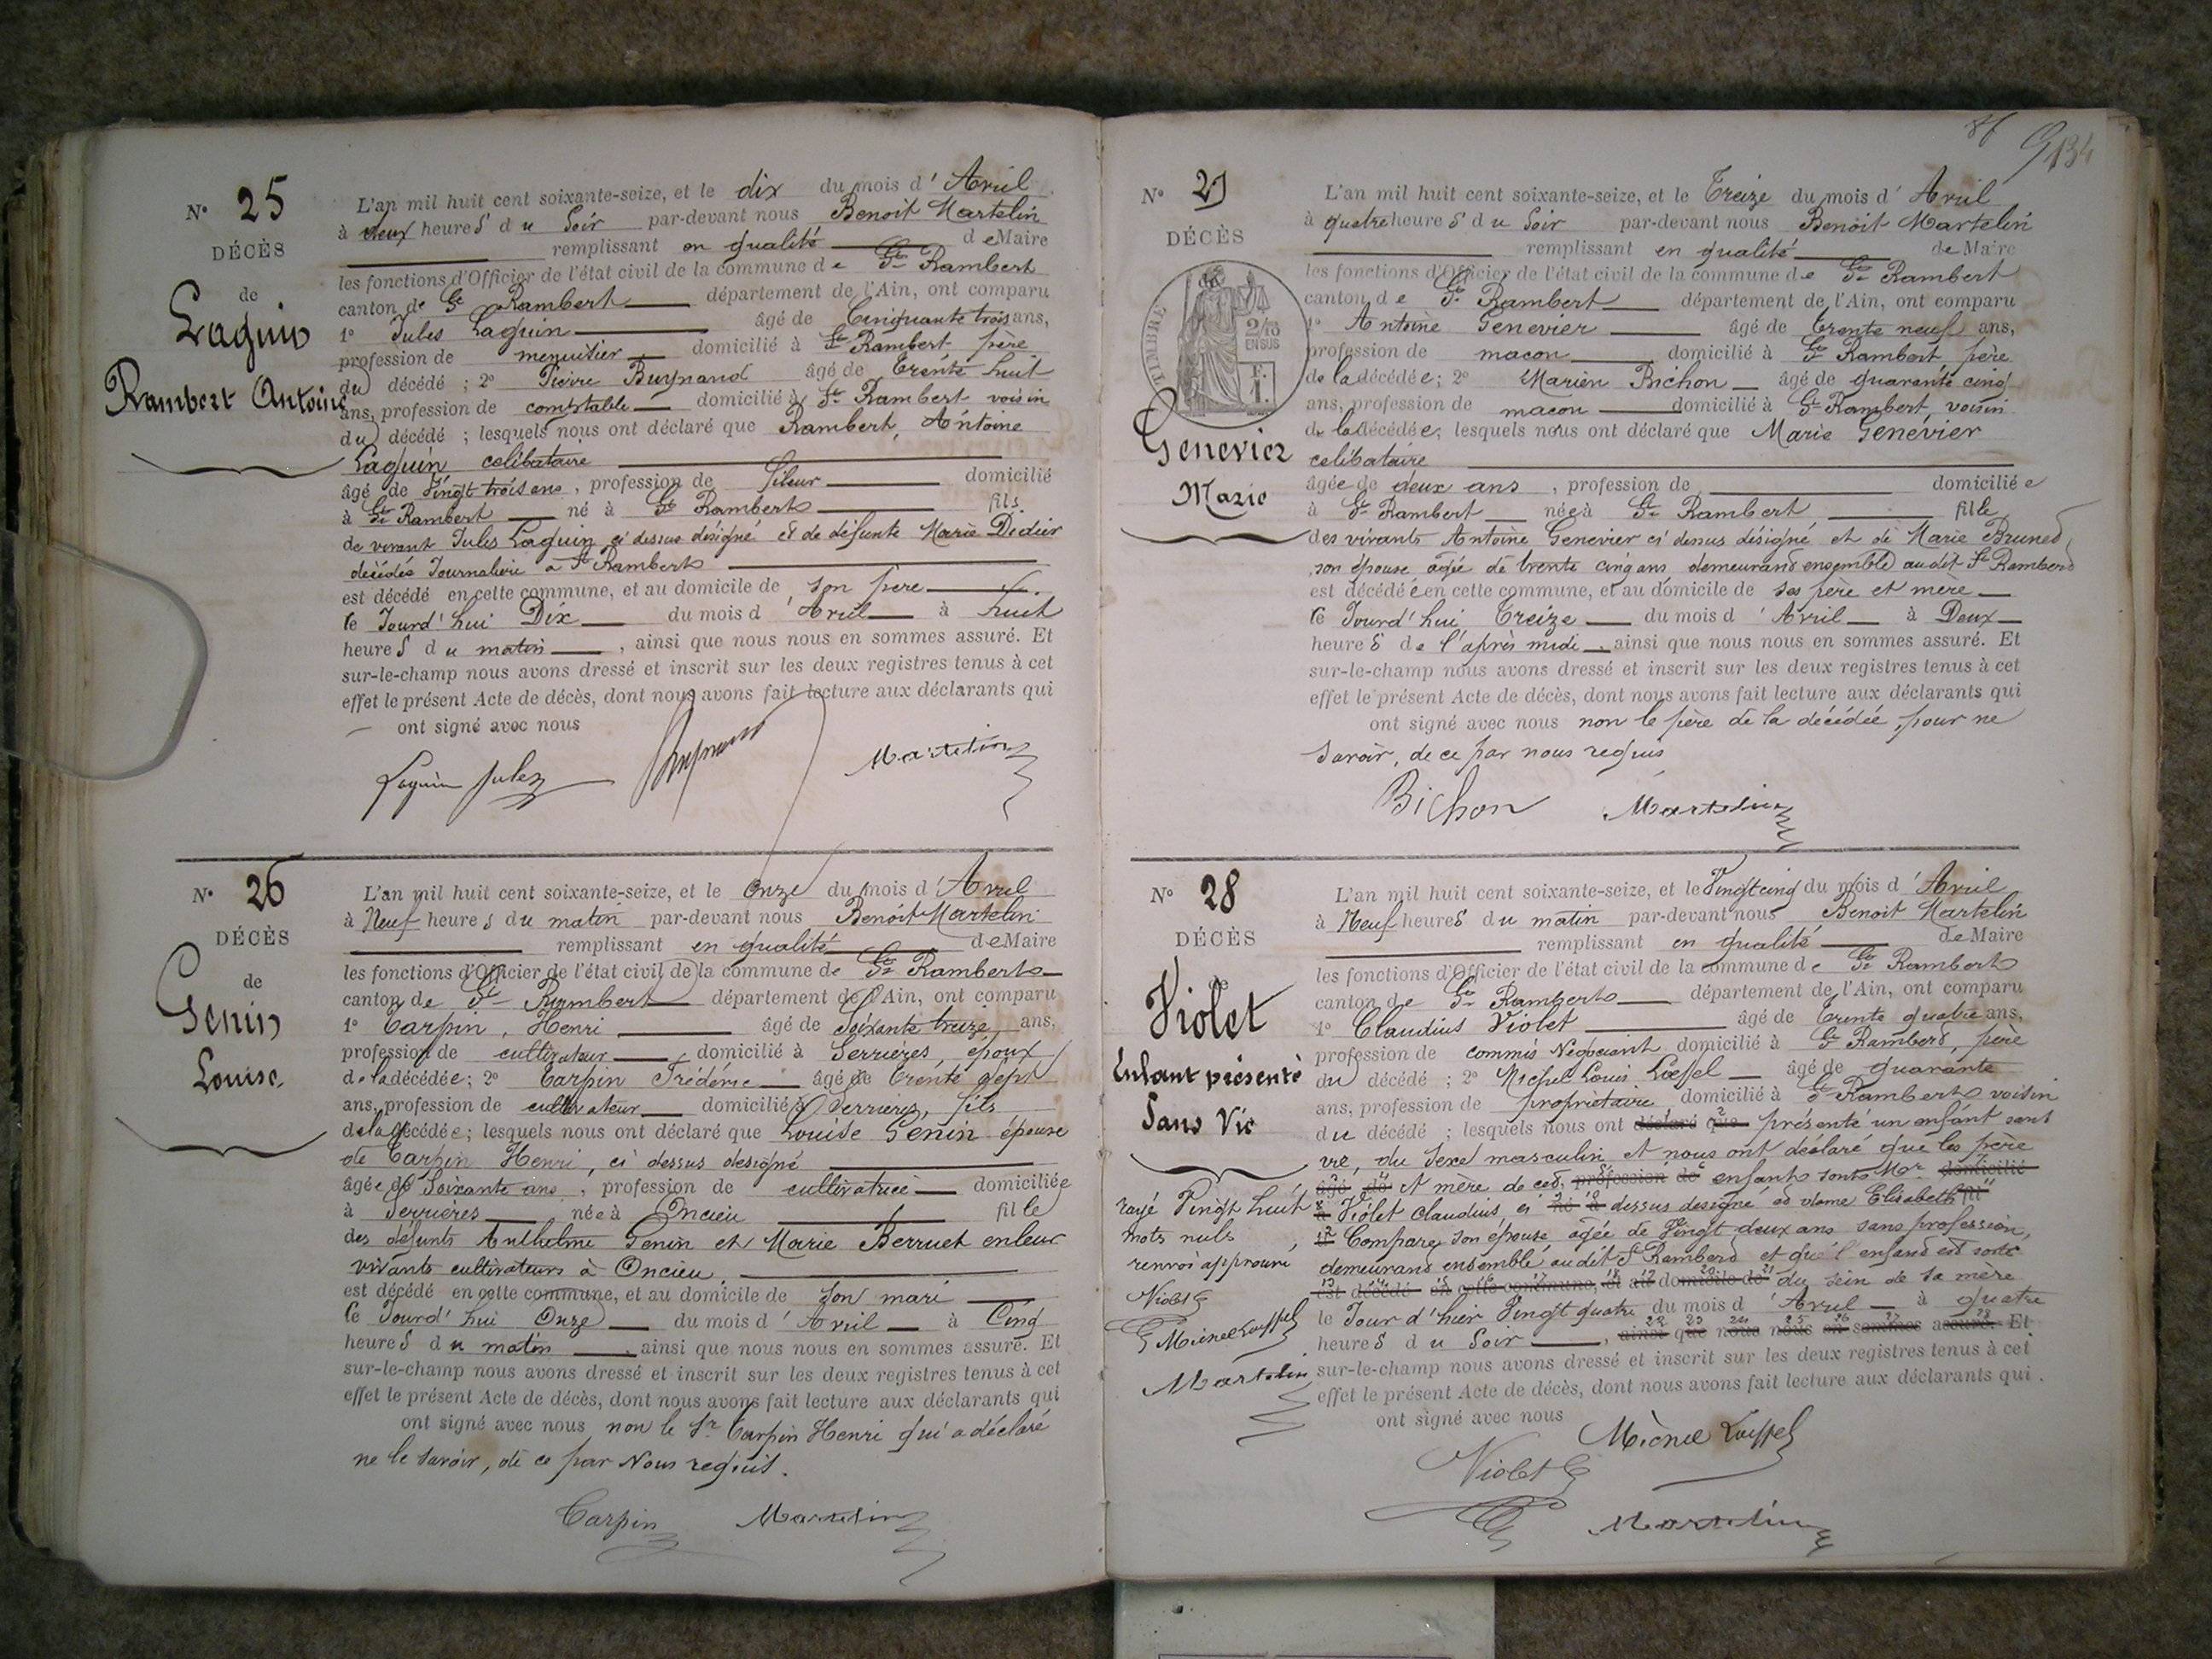 N° 25
DÉCÈS
de
Laguin
Rambert Antoine
L'an mil huit cent soixante-seize, et le dix du mois d'Avril
à deux heures du Soir par-devant nous Benoit Martelin
remplissant en qualité de Maire
les fonctions d'Officier de l'état civil de la commune de St Rambert
canton de St Rambert département de l'Ain, ont comparu
1° Jules Laguin âgé de Cinquante trois ans,
profession de menuisier domicilié à St Rambert père
du décédé ; 2° Pierre Buynand âgé de trente huit
ans, profession de comptable domicilié à St Rambert voisin
du décédé ; lesquels nous ont déclaré que Rambert, Antoine
Laguin celibataire
âgé de Vingt trois ans, profession de fileur domicilié
à St Rambert né à St Rambert fils
de vivant Jules Laguin ci dessus désigné et de défunte Marie Didier
décédée Journalière a St Rambert
est décédé en cette commune, et au domicile de son père
le Jourd'hui Dix du mois d'Avril à huit
heures du matin, ainsi que nous nous en sommes assuré. Et
sur-le-champ nous avons dressé et inscrit sur les deux registres tenus à cet
effet le présent Acte de décès, dont nous avons fait lecture aux déclarants qui
ont signé avec nous
Laguin Jules Buynand Martelin
N° 26
DÉCÈS
de
Genin
Louise.
L'an mil huit cent soixante-seize, et le Onze du mois d'Avril
à Neuf heures du matin par-devant nous Benoit Martelin
remplissant en qualité de Maire
les fonctions d'Officier de l'état civil de la commune de St Rambert
canton de St Rambert département de l'Ain, ont comparu
1° Carpin, Henri âgé de Soixante treize, ans,
profession de cultivateur domicilié à Serrières, époux
de la décédée; 2° Carpin Frédéric âgé de trente sept
ans, profession de cultivateur domicilié à Serrières, fils
de la décédée; lesquels nous ont déclaré que Louise Genin épouse
de Carpin Henri, ci dessus désigné
âgée de Soixante ans, profession de cultivatrice domiciliée
à Serrières née à Oncieu fille
des défunts Anthelme Genin et Marie Berruet en leur
vivants cultivateurs à Oncieu.
est décédé en cette commune, et au domicile de son mari
le Jourd'hui Onze du mois d'Avril à Cinq
heures du matin, ainsi que nous nous en sommes assuré. Et
sur-le-champ nous avons dressé et inscrit sur les deux registres tenus à cet
effet le présent Acte de décès, dont nous avons fait lecture aux déclarants qui
ont signé avec nous non le Sr Carpin Henri qui a déclaré
ne le savoir, de ce par Nous requis.
Carpin Martelin
86 134
N° 27
DÉCÈS
TIMBRE 2/10 EN SUS F. 1.
Genevier
Marie
L'an mil huit cent soixante-seize, et le Treize du mois d'Avril
à quatre heures du Soir par-devant nous Benoit Martelin
remplissant en qualité de Maire
les fonctions d'Officier de l'état civil de la commune de St Rambert
canton de St Rambert département de l'Ain, ont comparu
1° Antoine Genevier âgé de trente neuf ans,
profession de macon domicilié à St Rambert père
de la décédée; 2° Marien Bichon âgé de quarante cinq
ans, profession de macon domicilié à St Rambert, voisin
de la décédée; lesquels nous ont déclaré que Marie Genevier
celibataire
âgée de deux ans, profession de domiciliée
à St Rambert née à St Rambert fille
des vivants Antoine Genevier ci dessus désigné et de Marie Brunet
son épouse agée de trente cinq ans demeurant ensemble audit St Rambert
est décédée en cette commune, et au domicile de ses père et mère
le Jourd'hui Treize du mois d'Avril à Deux
heures de l'après midi, ainsi que nous nous en sommes assuré. Et
sur-le-champ nous avons dressé et inscrit sur les deux registres tenus à cet
effet le présent Acte de décès, dont nous avons fait lecture aux déclarants qui
ont signé avec nous non le père de la décédée, pour ne
savoir, de ce par nous requis
Bichon Martelin
N° 28
DÉCÈS
de
Violet
Enfant présenté
Sans Vie
rayé Vingt huit
mots nuls
renvoi approuvé
Violet
Michel Loeffel
Martelin
L'an mil huit cent soixante-seize, et le Vingt cinq du mois d'Avril
à Neuf heures du matin par-devant nous Benoit Martelin
remplissant en qualité de Maire
les fonctions d'Officier de l'état civil de la commune de St Rambert
canton de St Rambert département de l'Ain, ont comparu
1° Claudius Violet âgé de trente quatre ans,
profession de commis Négociant domicilié à St Rambert, père
du décédé ; 2° Michel Louis Loeffel âgé de quarante
ans, profession de propriétaire domicilié à St Rambert voisin
du décédé ; lesquels nous ont déclaré que présenté un enfant sans
vie, du Sexe masculin et nous ont déclaré que les père
âgé de et mère de cet profession de enfant sont Mr domicilié
à Violet Claudius ci né à dessus désigné et dame Elisabeth fil
Comparey son épouse agée de Vingt deux ans sans profession,
demeurant ensemble audit St Rambert et que l'enfant est sorti
est décédé en cette commune, et au domicile de du sein de sa mère
le Jour d'hier Vingt quatre du mois d'Avril à quatre
heures du Soir, ainsi que nous nous en sommes assuré. Et
sur-le-champ nous avons dressé et inscrit sur les deux registres tenus à cet
effet le présent Acte de décès, dont nous avons fait lecture aux déclarants qui
ont signé avec nous
Michel Loeffel
Violet
Martelin